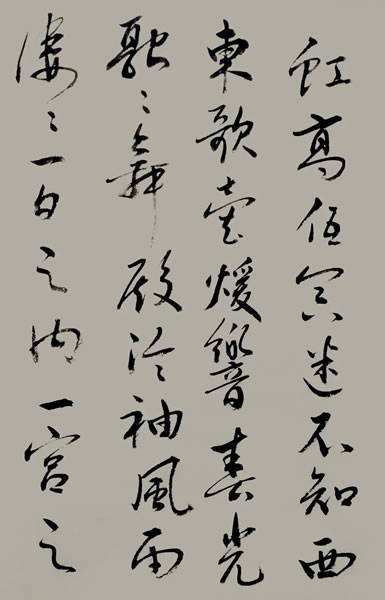 虹高低冥迷不知西
東歌臺煖響春光
融々舞殿冷袖風雨
凄々一日之内一宮之